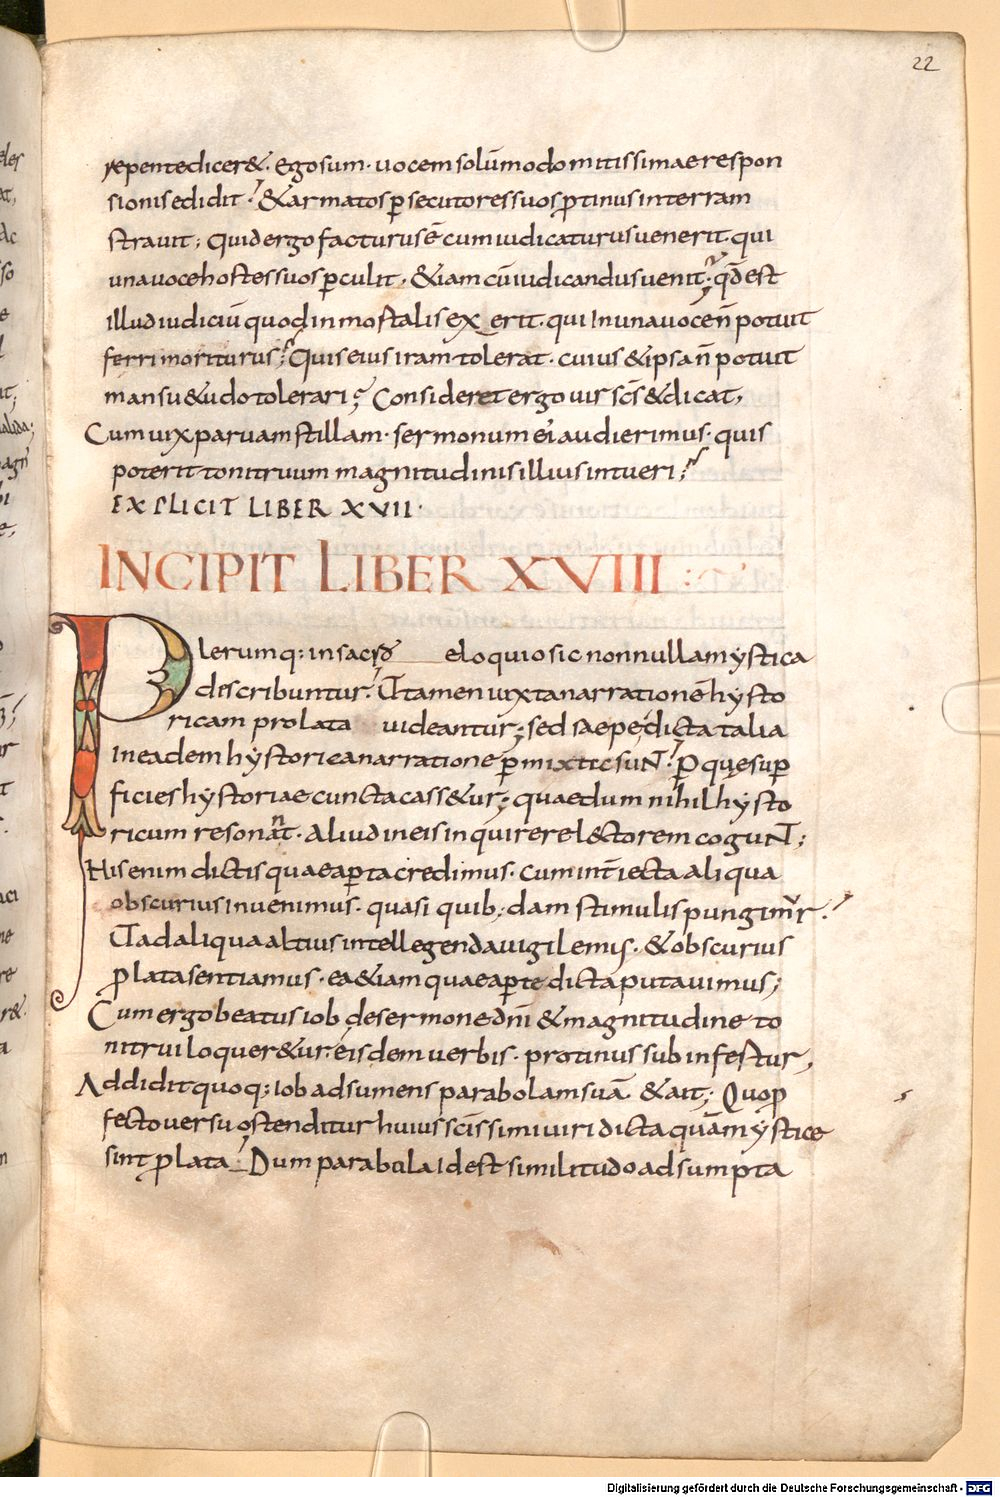 22
repentedicer&. Egosum. uocem solūmodo mitissimae respon
sionis edidit. & armatos p̄secutores suos p̄tinus in terram
strauit; Quid ergo facturus ē cum iudicaturus uenerit. qui
una uoce hostes suos p̄culit. &iam cū iudicandus uenit; qd̄ est
illud iudiciū quod inmortalis ex erit. qui In una uoce n̄ potuit
ferri moriturus; Quis eius iram tolerat. cuius & ipsa n̄ potuit
mansu&udo tolerari; Consideret ergo uir sc̄s & dicat,
Cum uix paruam stillam. sermonum ei audierimus. quis
poterit tonitruum magnitudinis illius intueri;
EXPLICIT LIBER XVII.
INCIPIT LIBER XVIII
Plerumq; in sacro eloquio sic nonnulla mystica
describuntur. Ut tamen iuxta narrationē hysto
ricam prolata uideantur; sed saepe dicta talia
In eadem hystorica narratione p̄mixtic suNT. P̄ quę sup̄
ficies hystoriae cuncta cass&ur; quae dum nihil hysto
ricum resonant. Aliud in eis inquirere lectorem coguNT;
His enim dictis quae ap̄ta credimus. cum int̄iecta aliqua
obscurius inuenimus. quasi quib;dam stimulis pungimur.
Ut ad aliqua altius intellegenda uigilemus. & obscurius
p̄lata sentiamus. ea &iam quae ap̄te dicta putauimus;
Cum ergo beatus iob de sermone dn̄i & magnitudine to
nitrui loquer&ur. eisdem uerbis. protinus subinfertur,
Addidit quoq; Iob adsumens parabolam suā. & ait; Quo p̄
fecto uersu ostenditur huius sc̄issimi uiri dicta quā mystice
sint p̄lata. Dum parabula Id est similitudo adsumpta
Digitalisierung gefördert durch die Deutsche Forschungsgemeinschaft - DFG